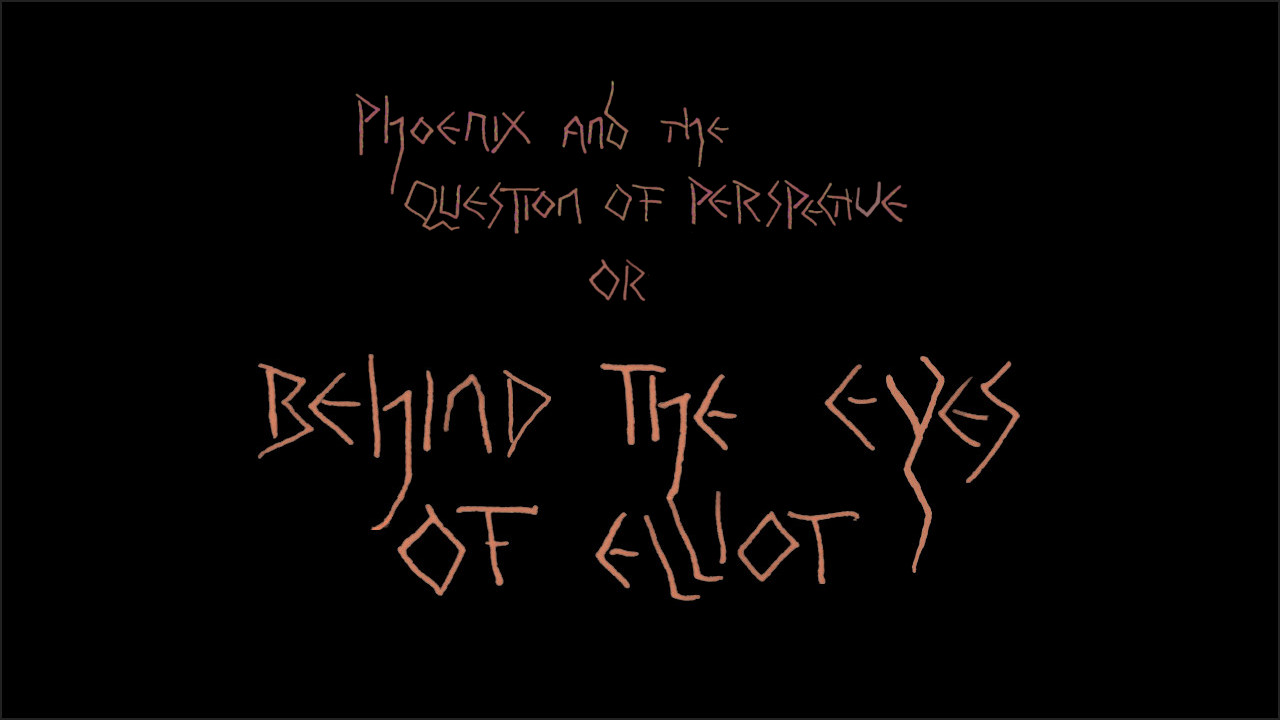 Phoenix and the
Question of Perspective
or
Behind the eyes
of Elliot